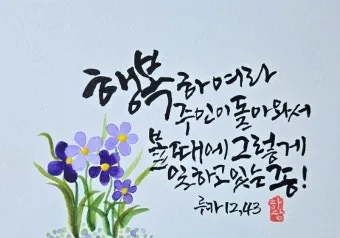 행복하여라
주인이 돌아와서
볼 때에 그렇게
일하고 있는 종!
루카 12,43